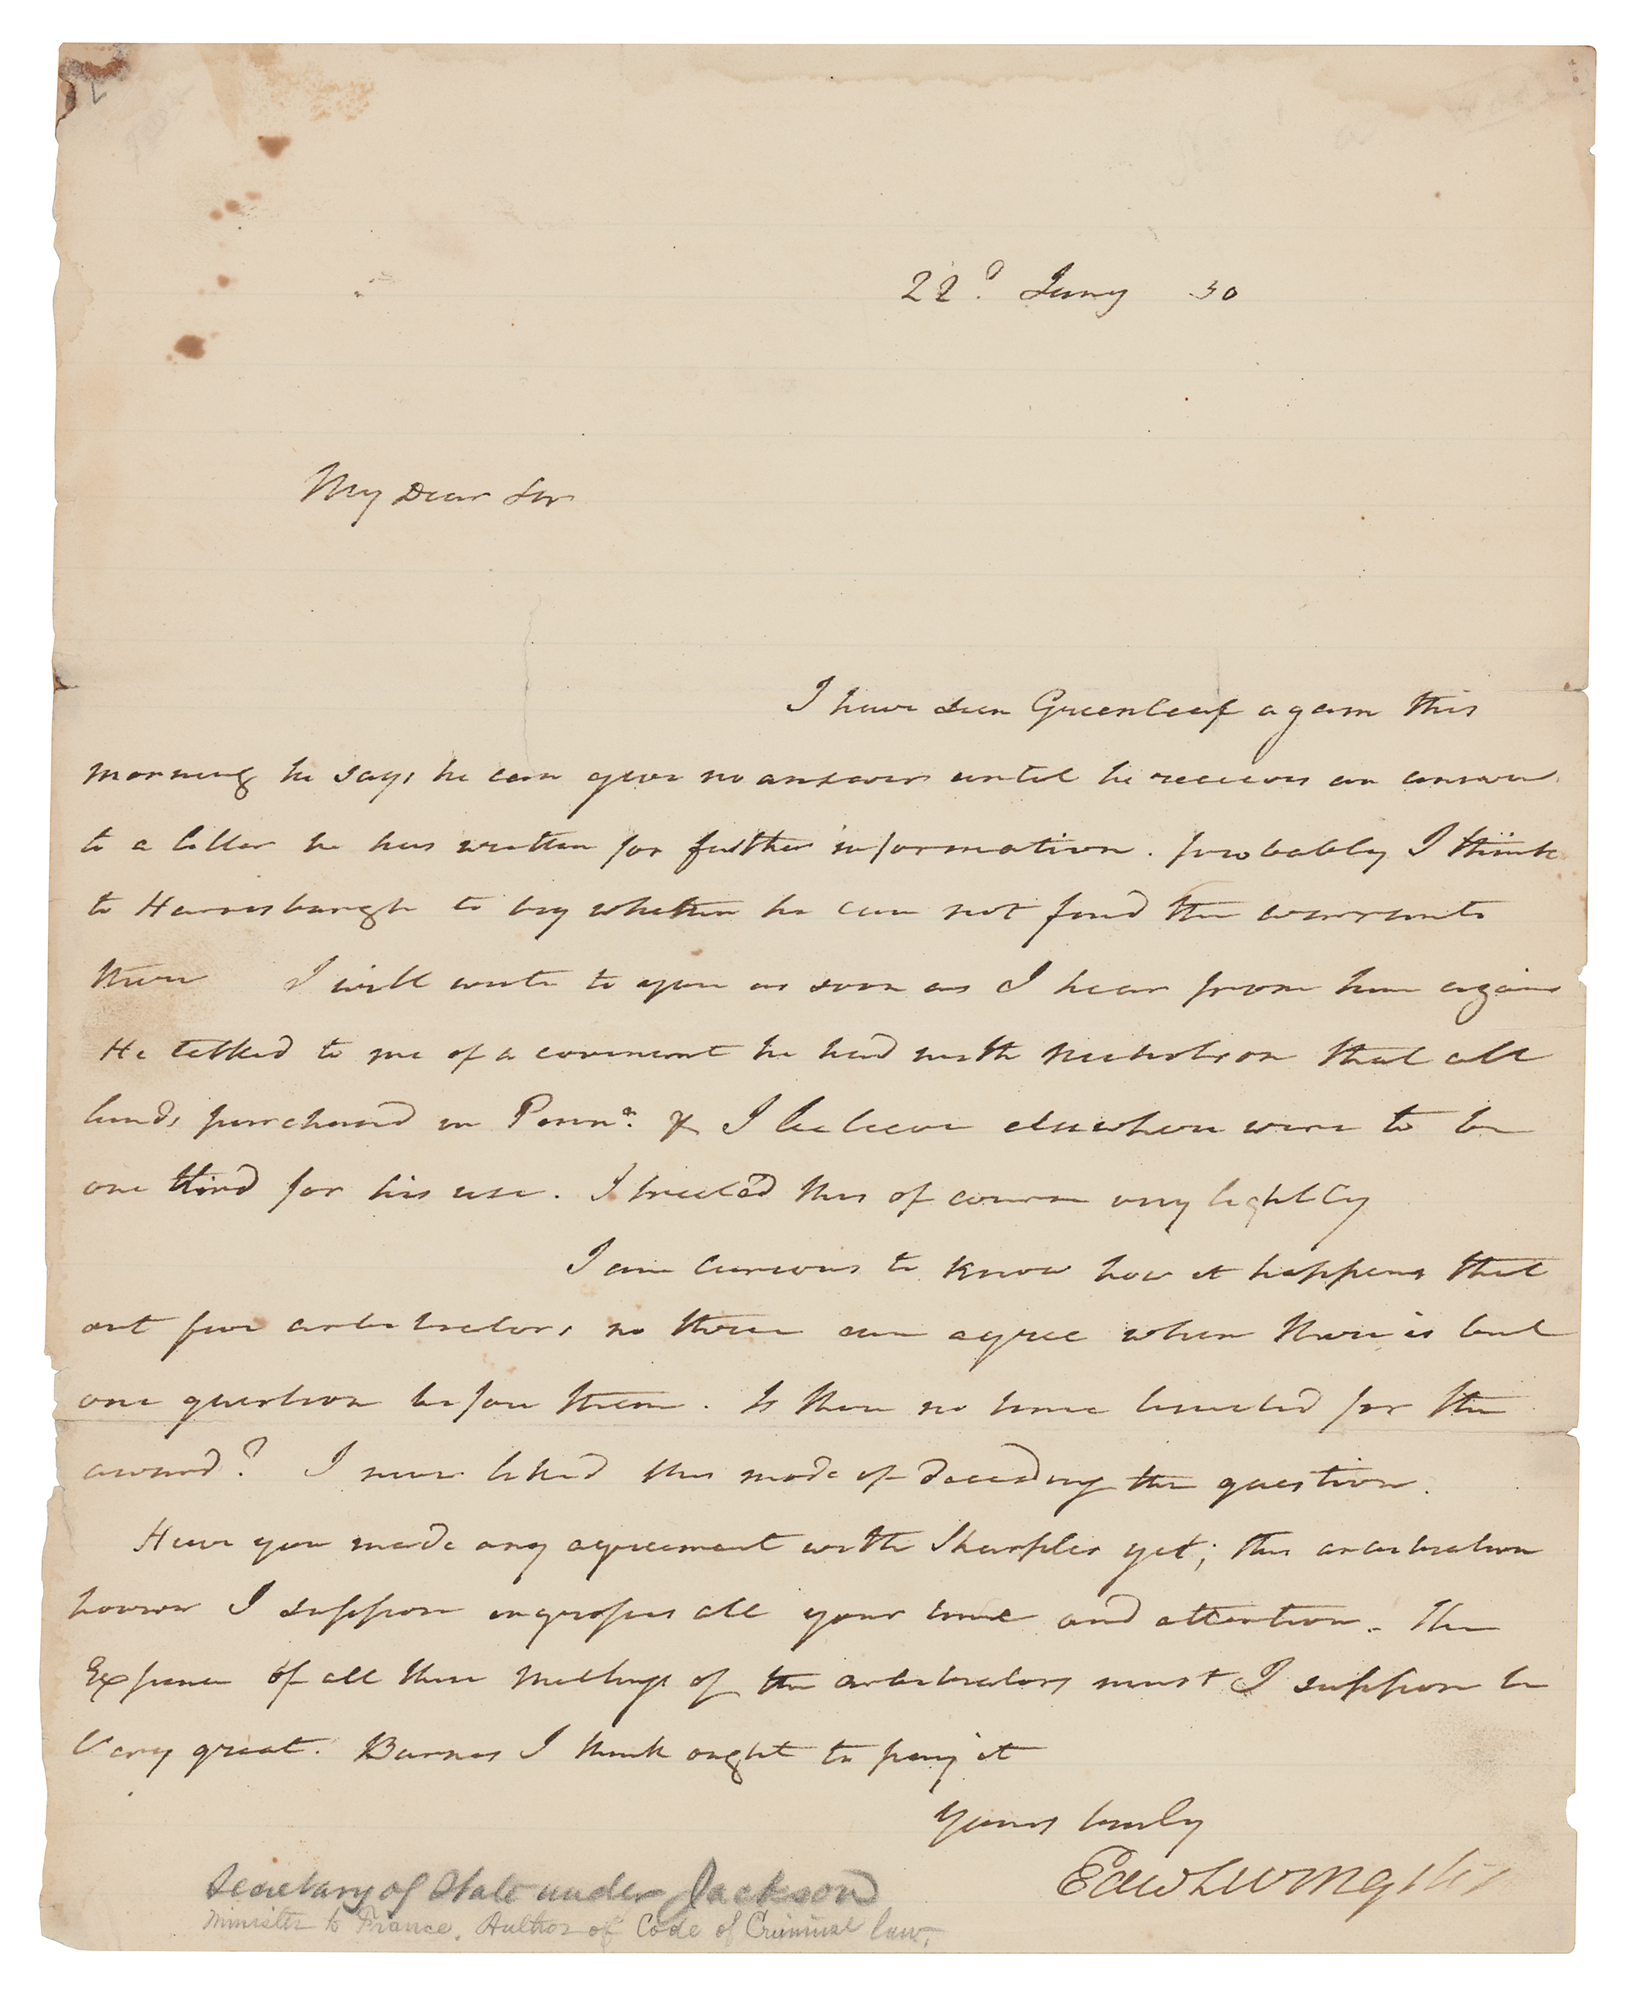 22d. Jany 30
My Dear Sir
I have seen Greenleaf again this
morning he says he can give no answer until he receives an answer
to a letter he has written for further information. probably I think
to Harrisburgh to try whether he can not find the warrants
there I will write to you as soon as I hear from him again
He talked to me of a covenant he had with Nicholson that all
lands purchased in Penna. & I believe elsewhere were to be
one third for his use. I treated this of course very lightly
I am curious to know how it happens that
out five arbitrators no three can agree when there is but
one question before them. Is there no time limited for the
award? I never liked this mode of deciding the question.
Have you made any agreement with Sharples yet; this arbitration
however I suppose engrosses all your time and attention. The
Expence of all these meetings of the arbitrators must I suppose be
Very great. Barnes I think ought to pay it
Yours truly
Edw Livingston
Secretary of State under Jackson
Minister to France. Author of Code of Criminal law.